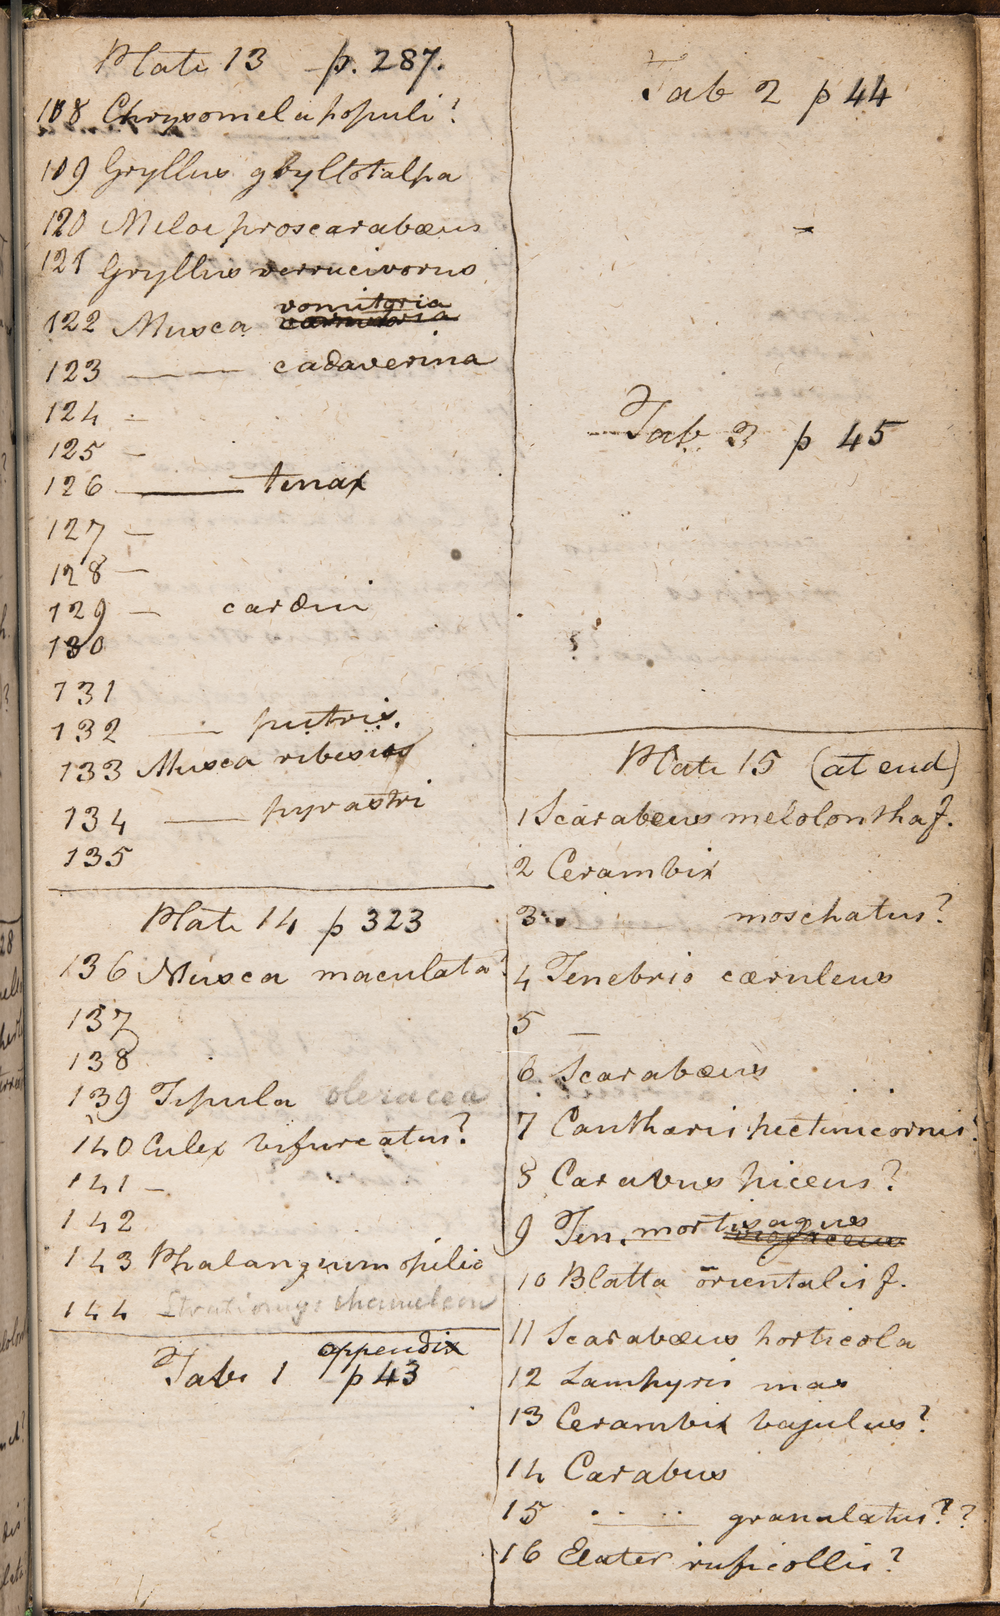 Plate 13 p. 287.
108 Chrysomela populi?
109 Gryllus gryllotalpa
120 Meloe proscarabæus
121 Gryllus verrucivorus
vomitoria
122 Musca
123 —— cadaverina
124 -
125 -
126 —— tenax
127 —
128 —
129 — cardui
130
131
132 — putris.
133 Musca ribesios
134 —— pyrastri
135
Plate 14 p 323
136 Musca maculata?
137
138
139 Tipula oleracea
140 Culex bifurcatus?
141 -
142
143 Phalangium opilio
144 - Stratiomys chameleon
appendix
Tab 1 p 43
Tab 2 p 44
Tab 3 p 45
Plate 15 (at end)
1 Scarabeus melolontha f.
2 Cerambix
3 moschatus?
4 Tenebrio cæruleus
5 —
6 Scarabæus
7 Cantharis pectinicornis?
8 Carabus piceus?
9 Ten. mortisagus
10 Blatta orientalis f.
11 Scarabæus horticola
12 Lampyris mas
13 Cerambix bajulus?
14 Carabus
15 .. .. granulatus??
16 Elater ruficollis?